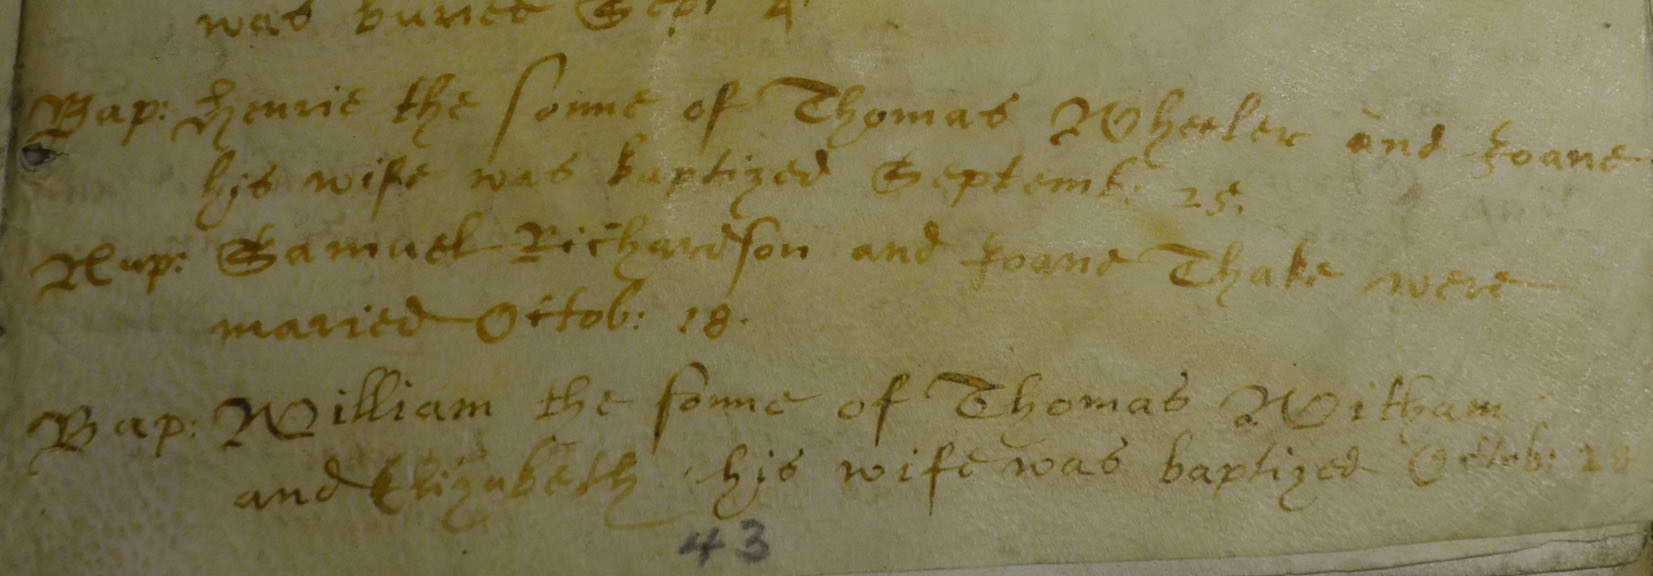 was buried Sept 4
Bap: Henrie the sonne of Thomas Wheeler and Joane
his wife was baptized Septemb: 25.
Nup: Samuel Richardson and Joane Thake were
maried Octob: 18.
Bap: William the sonne of Thomas Witham
and Elizabeth his wife was baptized Octob: 28
43